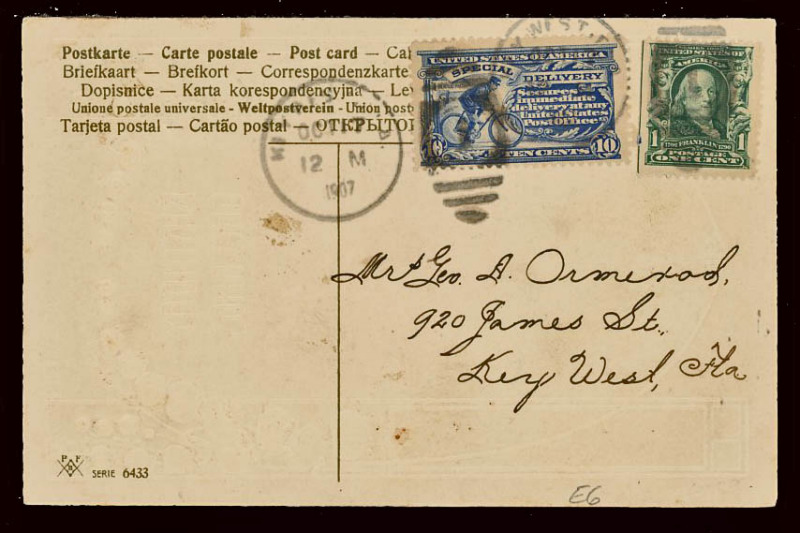 Postkarte — Carte postale — Post card — Ca
Briefkaart — Brefkort — Correspondenzkarte
Dopisnice — Karta korespondencyjna — Lev
Unione postale universale - Weltpostverein - Union post
Tarjeta postal — Cartão postal — ОТКРЫТО
12 M
1907
UNITED STATES OF AMERICA
SPECIAL DELIVERY
Secures
immediate
delivery at any
United States
Post Office
10 TEN CENTS 10
WEST
UNITED STATES OF
AMERICA
1706 FRANKLIN 1790
1 POSTAGE 1
ONE CENT
Mrs Geo. A. Ormerod,
920 James St.,
Key West, Fla
P F
B
SERIE 6433
E6